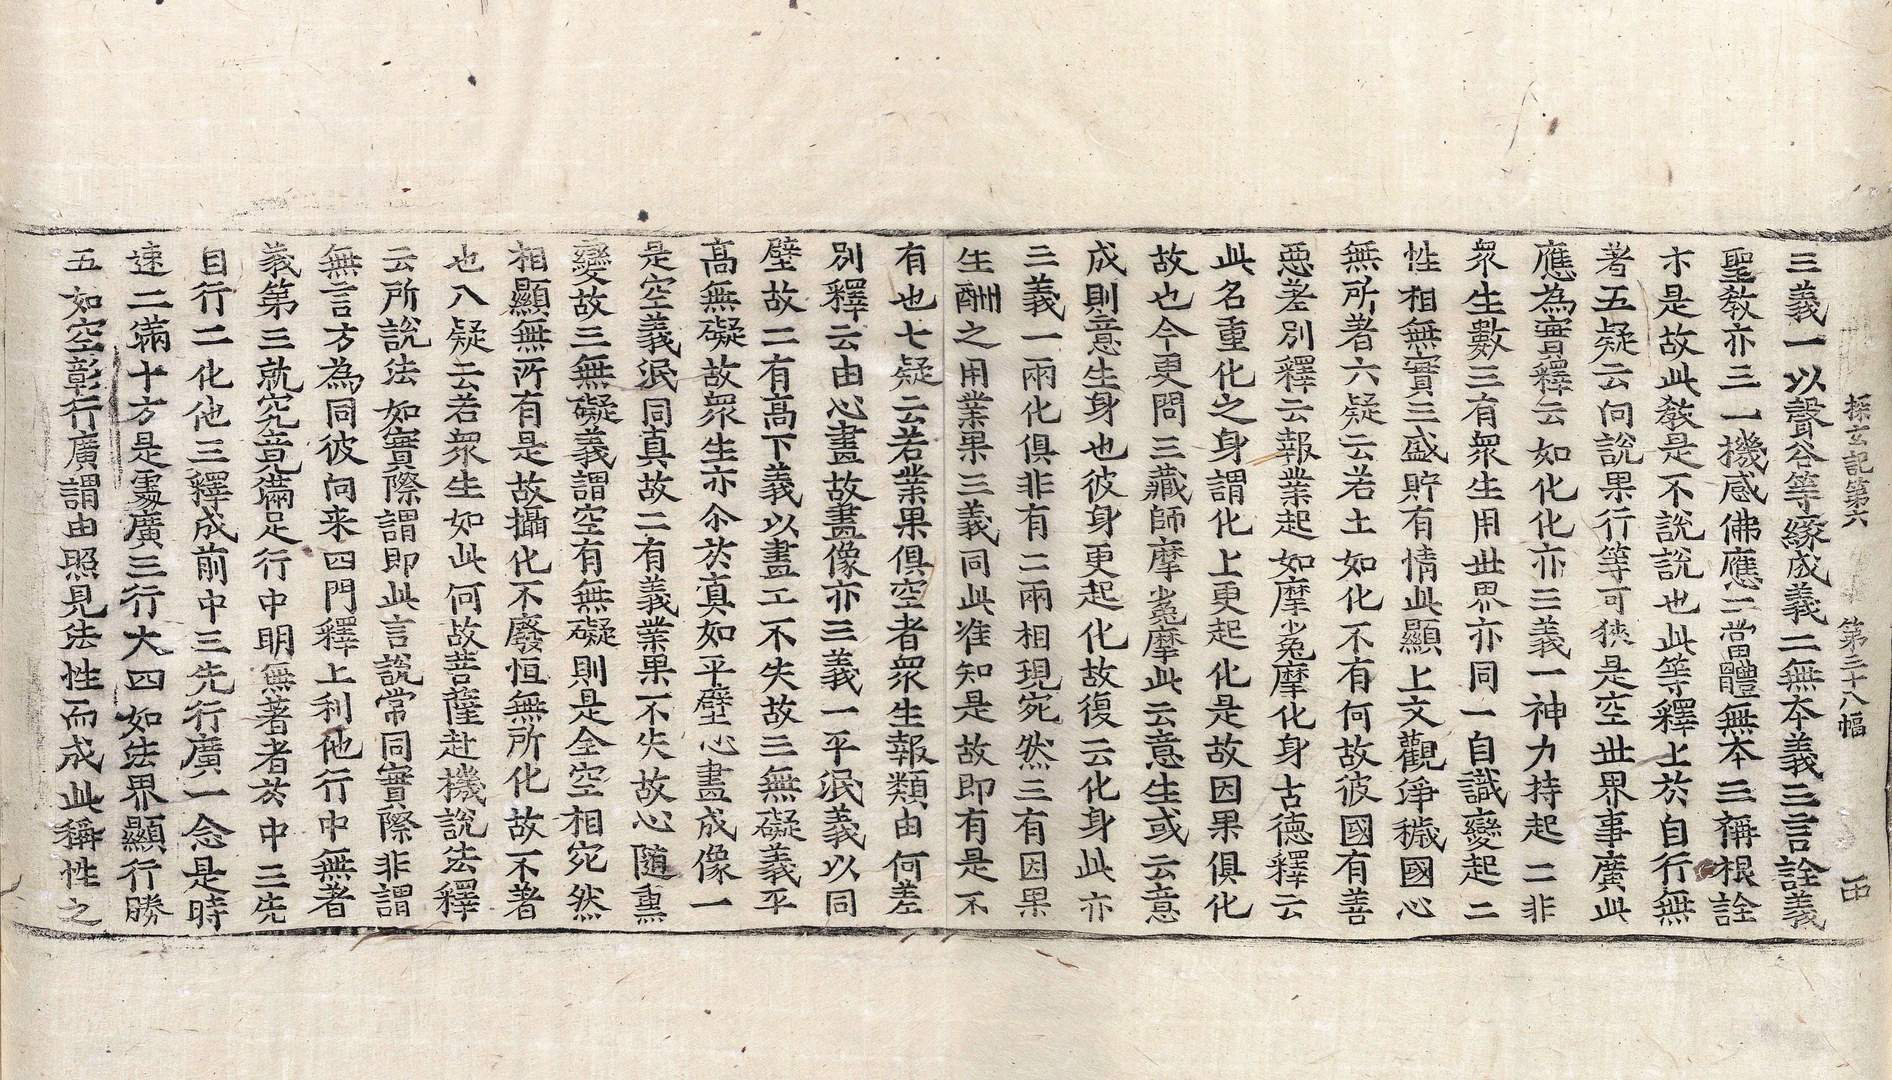 探玄記第六　第三十八幅　罒
三義一以聲名等緣成義二無本義三言詮義
聖教亦三一機感佛應二當體無本三稱根詮
示是故此教是不說說也此等釋上於自行無
著五疑云向說果行等可狹是空世界事廣此
應為實釋云如化化亦三義一神力持起二非
衆生數三有衆生用世界亦同一自識變起二
性相無實三盛貯有情此顯上文觀淨穢國心
無所著六疑云若土如化不有何故彼國有善
惡差別釋云報業起如摩㝹摩化身古德釋云
此名重化之身謂化上更起化是故因果俱化
故也今更問三藏師摩㝹摩此云意生或云意
成則意生身也彼身更起化故復云化身此亦
三義一兩化俱非有二兩相現宛然三有因果
生酬之用業果三義同此准知是故即有是不
有也七疑云若業果俱空者衆生報類由何差
別釋云由心畫故畫像亦三義一平泯義以同
壁故二有高下義以畫工不失故三無礙義平
高無礙故衆生亦尒於真如平壁心畫成像一
是空義泯同真故二有義業果不失故心隨熏
變故三無礙義謂空有無礙則是全空相宛然
相顯無所有是故攝化不廢恒無所化故不著
也八疑云若衆生如此何故菩薩赴機說法釋
云所說法如實際謂即此言說常同實際非謂
無言方為同彼向来四門釋上利他行中無著
義第三就究竟滿足行中明無著者於中三先
自行二化他三釋成前中三先行廣一念是時
速二滿十方是處廣三行大四如法界顯行勝
五如空彰行廣謂由照見法性而成此稱性之